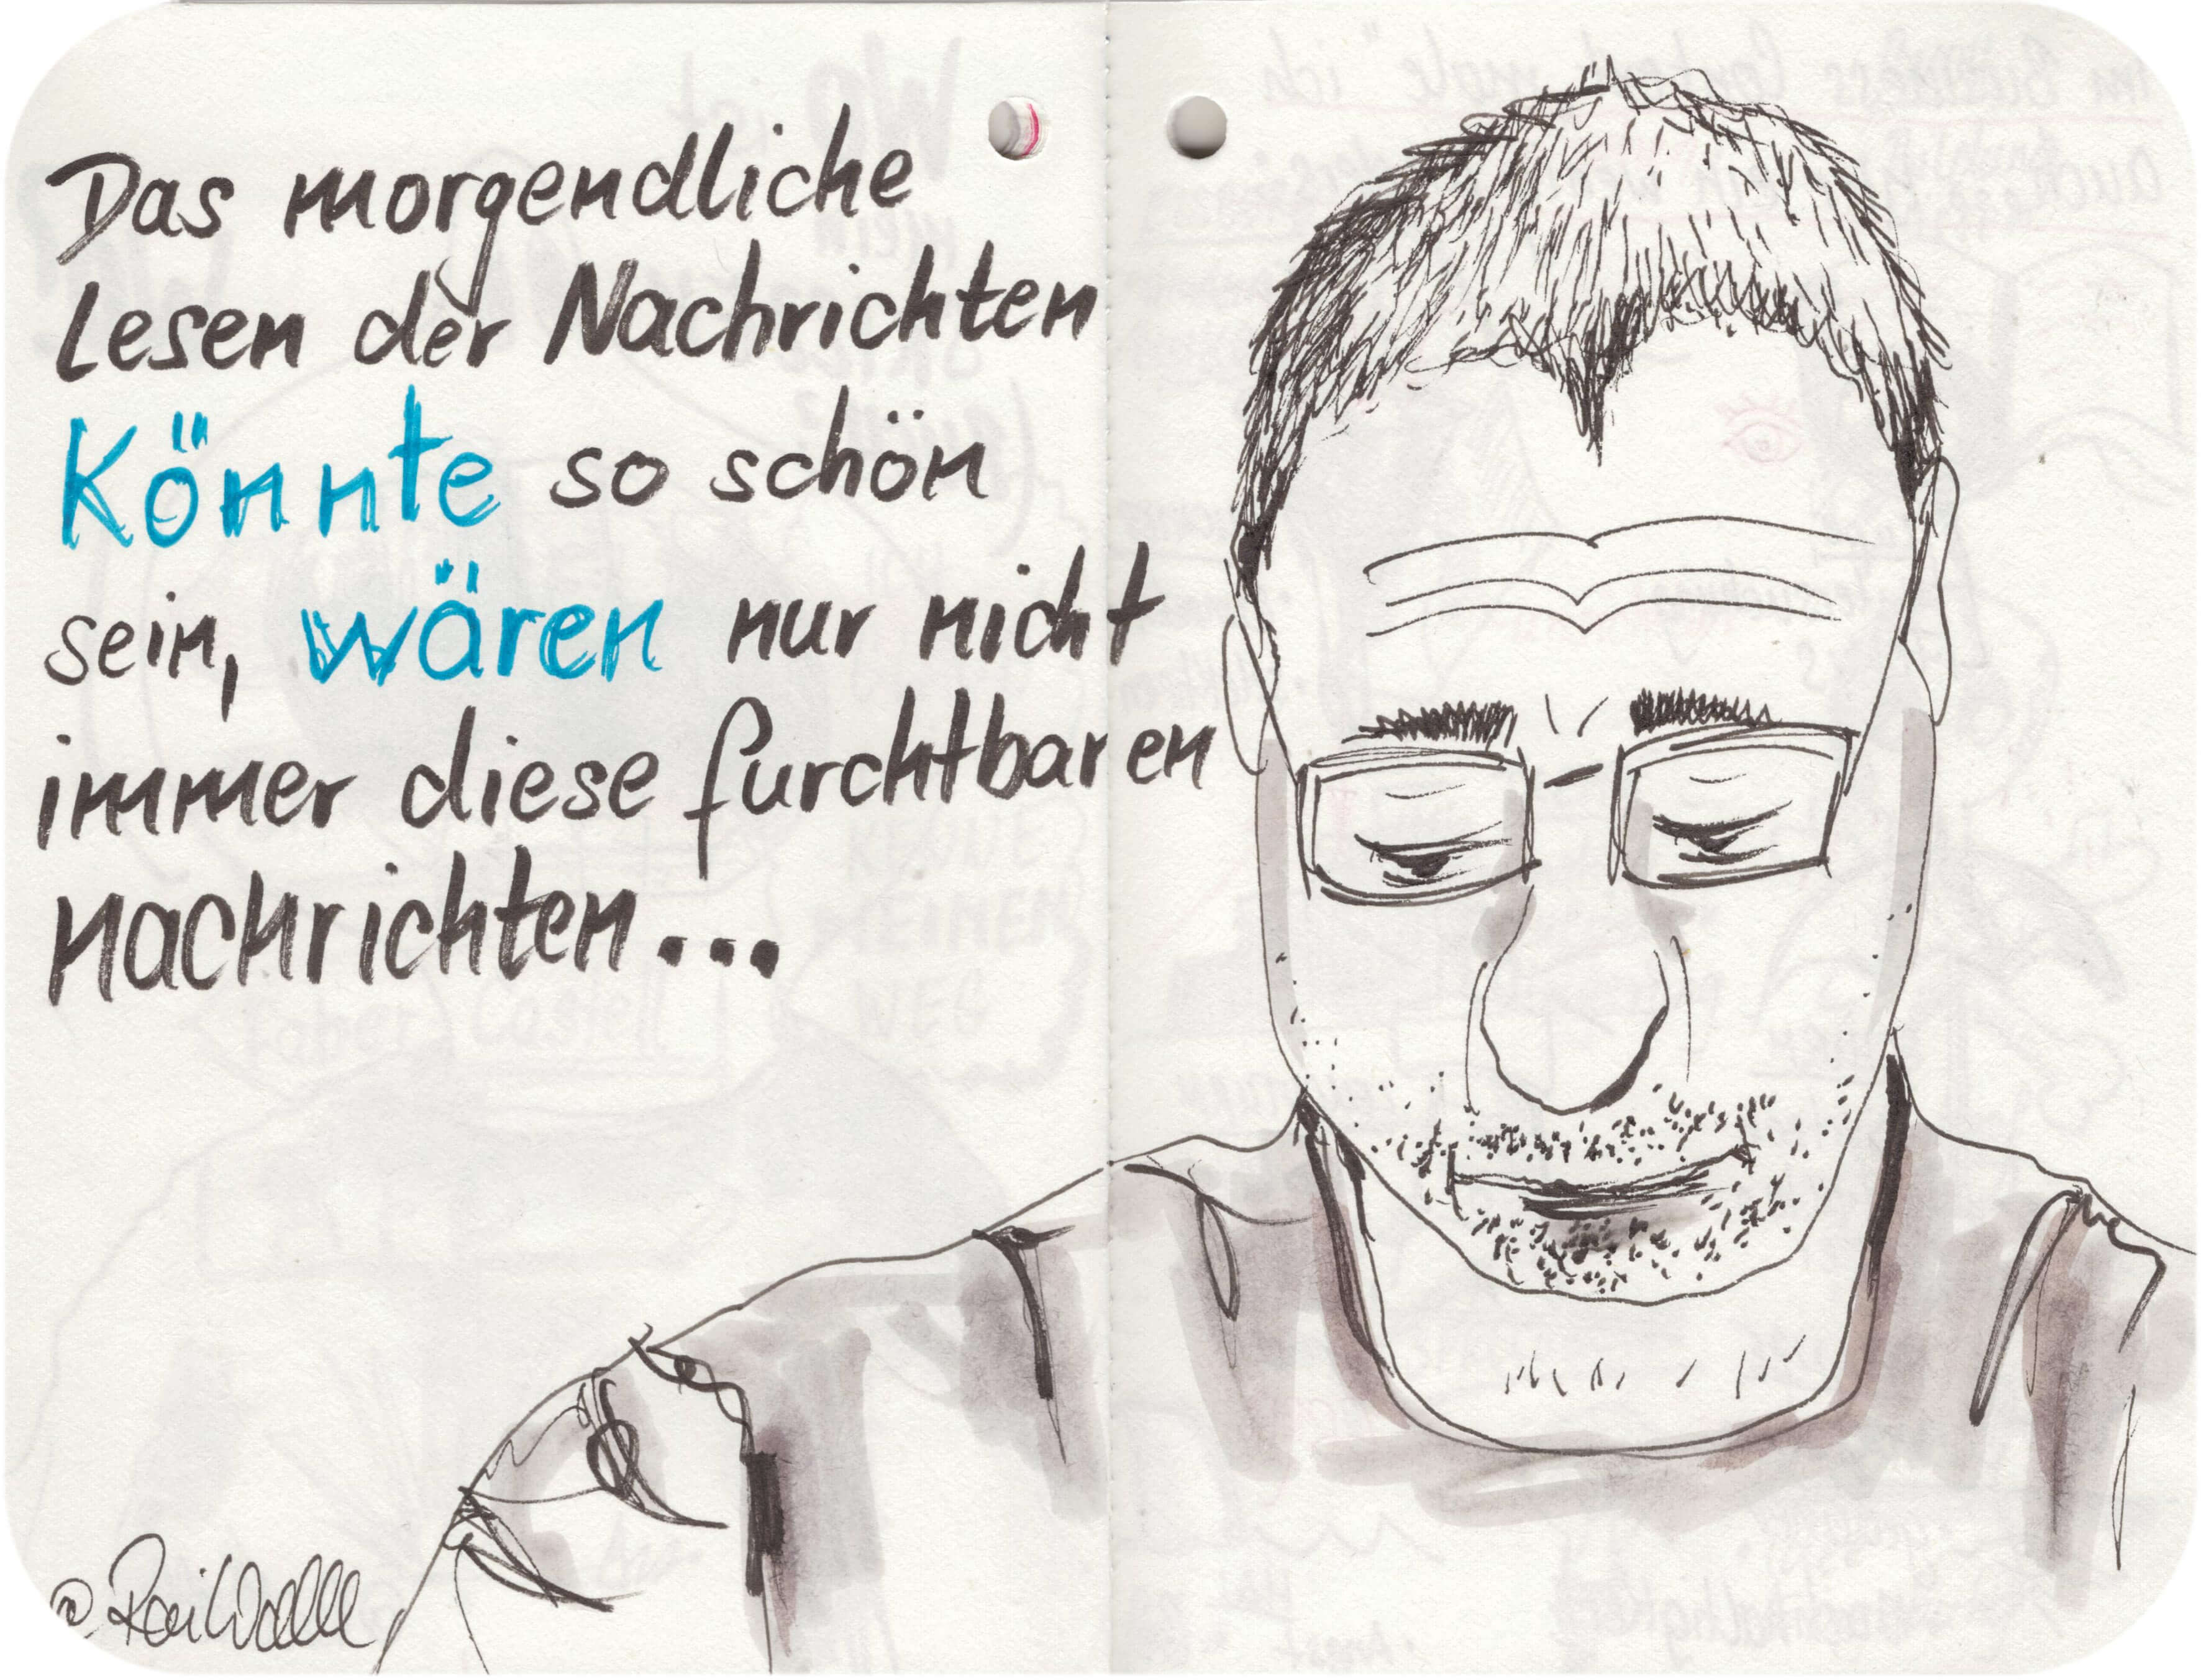 Das morgendliche
Lesen der Nachrichten
Könnte so schön
sein, wären nur nicht
immer diese furchtbaren
nachrichten...
@RaiWalle